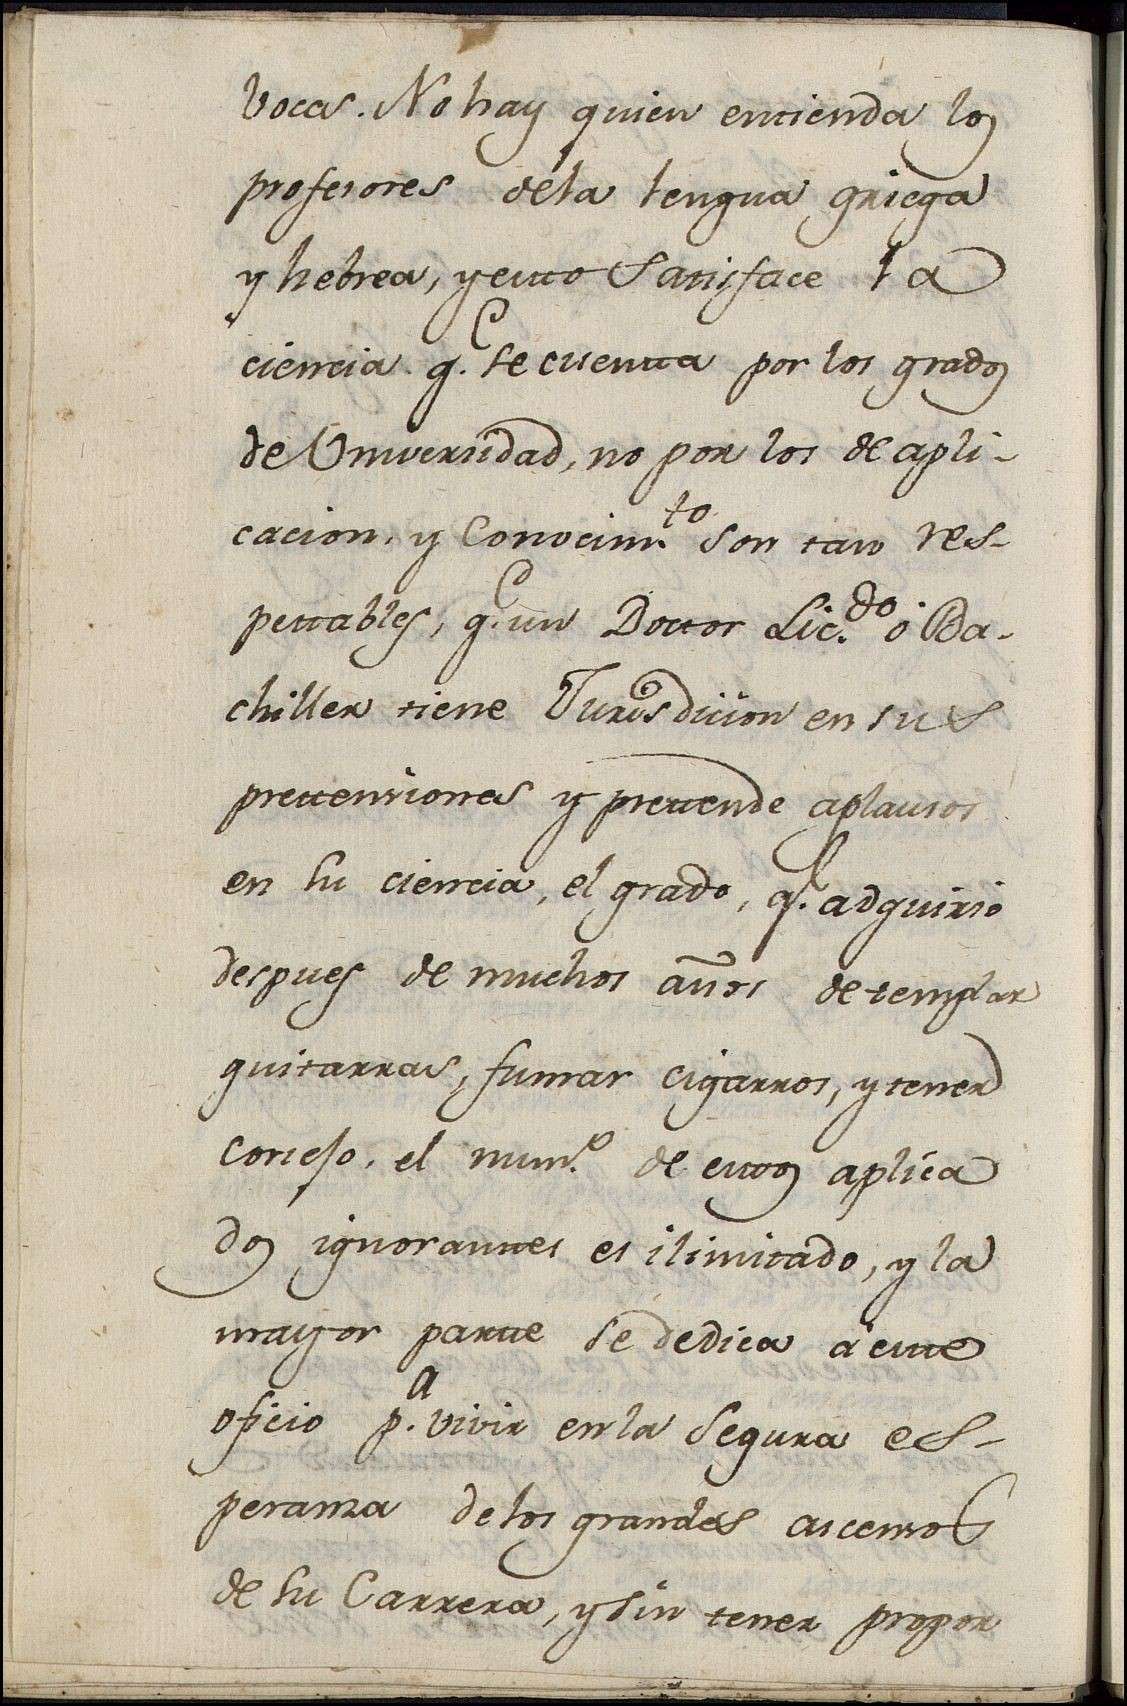 vocas. No hay quien entienda los
profesores dela lengua griega
y hebrea, y esto Satisface la
ciencia q.e se cuenta por los grados
de Universidad, no por los de apli-
cacion, y Conocim.to son tan res-
pettables, q.e un Doctor Lic.do ó Ba-
chiller tiene Jurisdicion en sus
prettensiones y prettende aplausos
en su ciencia, el grado, q.e adquirió
despues de muchos años de templar
guitarras, fumar cigarros, y tener
cortejo, el num.o de estos aplica
dos ignorantes es ilimitado, y la
mayor parte se dedica á este
oficio p.a vivir en la Segura es-
peranza de los grandes ascensos
de su Carrera, y sin tener propor